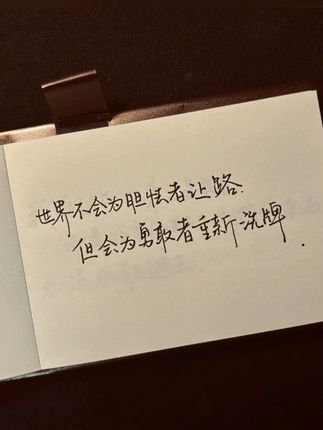 世界不会为胆怯者让路
但会为勇敢者重新洗牌.